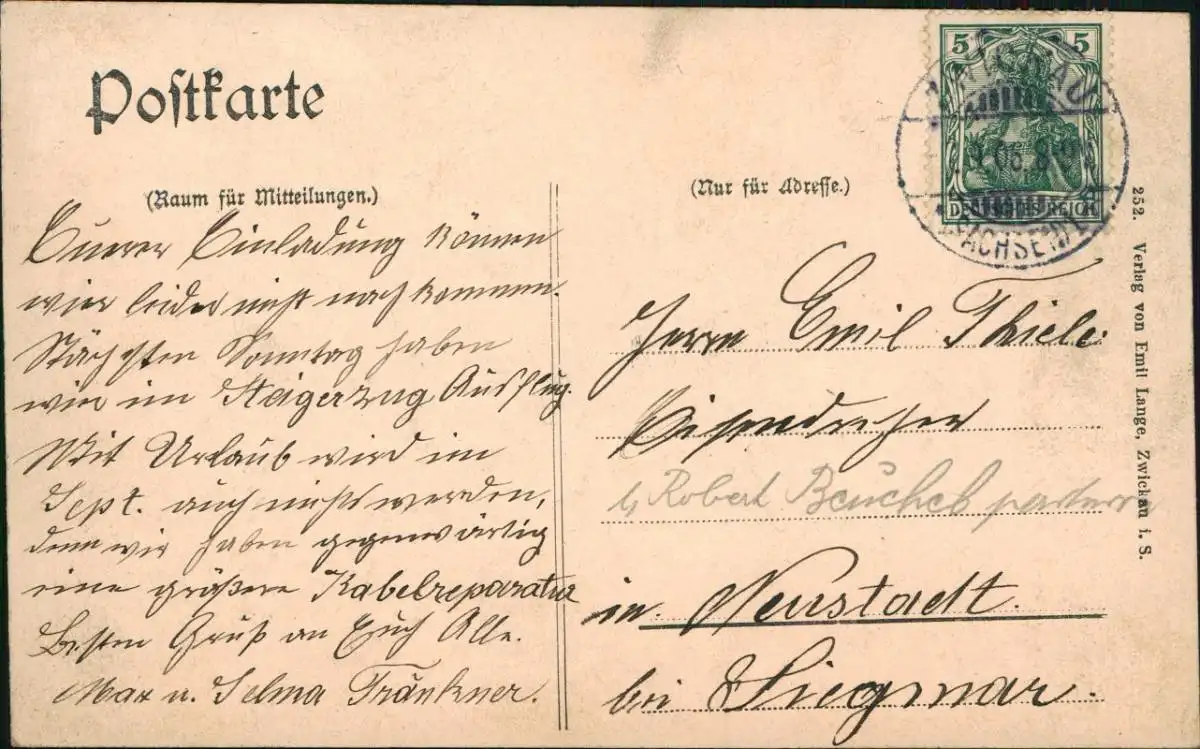 Postkarte
(Raum für Mitteilungen.)
Eurer Einladung können
wir leider nicht nachkommen.
Nächsten Sonntag haben
wir im Steigerzug Ausflug.
Mit Urlaub wird im
Sept. auch nichts werden,
denn wir haben gegenwärtig
eine größere Kabelreparatur
Besten Gruß an Euch Alle.
Max u. Selma Fränkner.
5 5
ZWICKAU
05. 8-9
(SACHSEN)
DEUTSCHES REICH
(Nur für Adresse.)
Herrn Emil Thiele
Eisendreher
b. Robert parterre
in Neustadt
bei Siegmar.
252. Verlag von Emil Lange, Zwickau i. S.